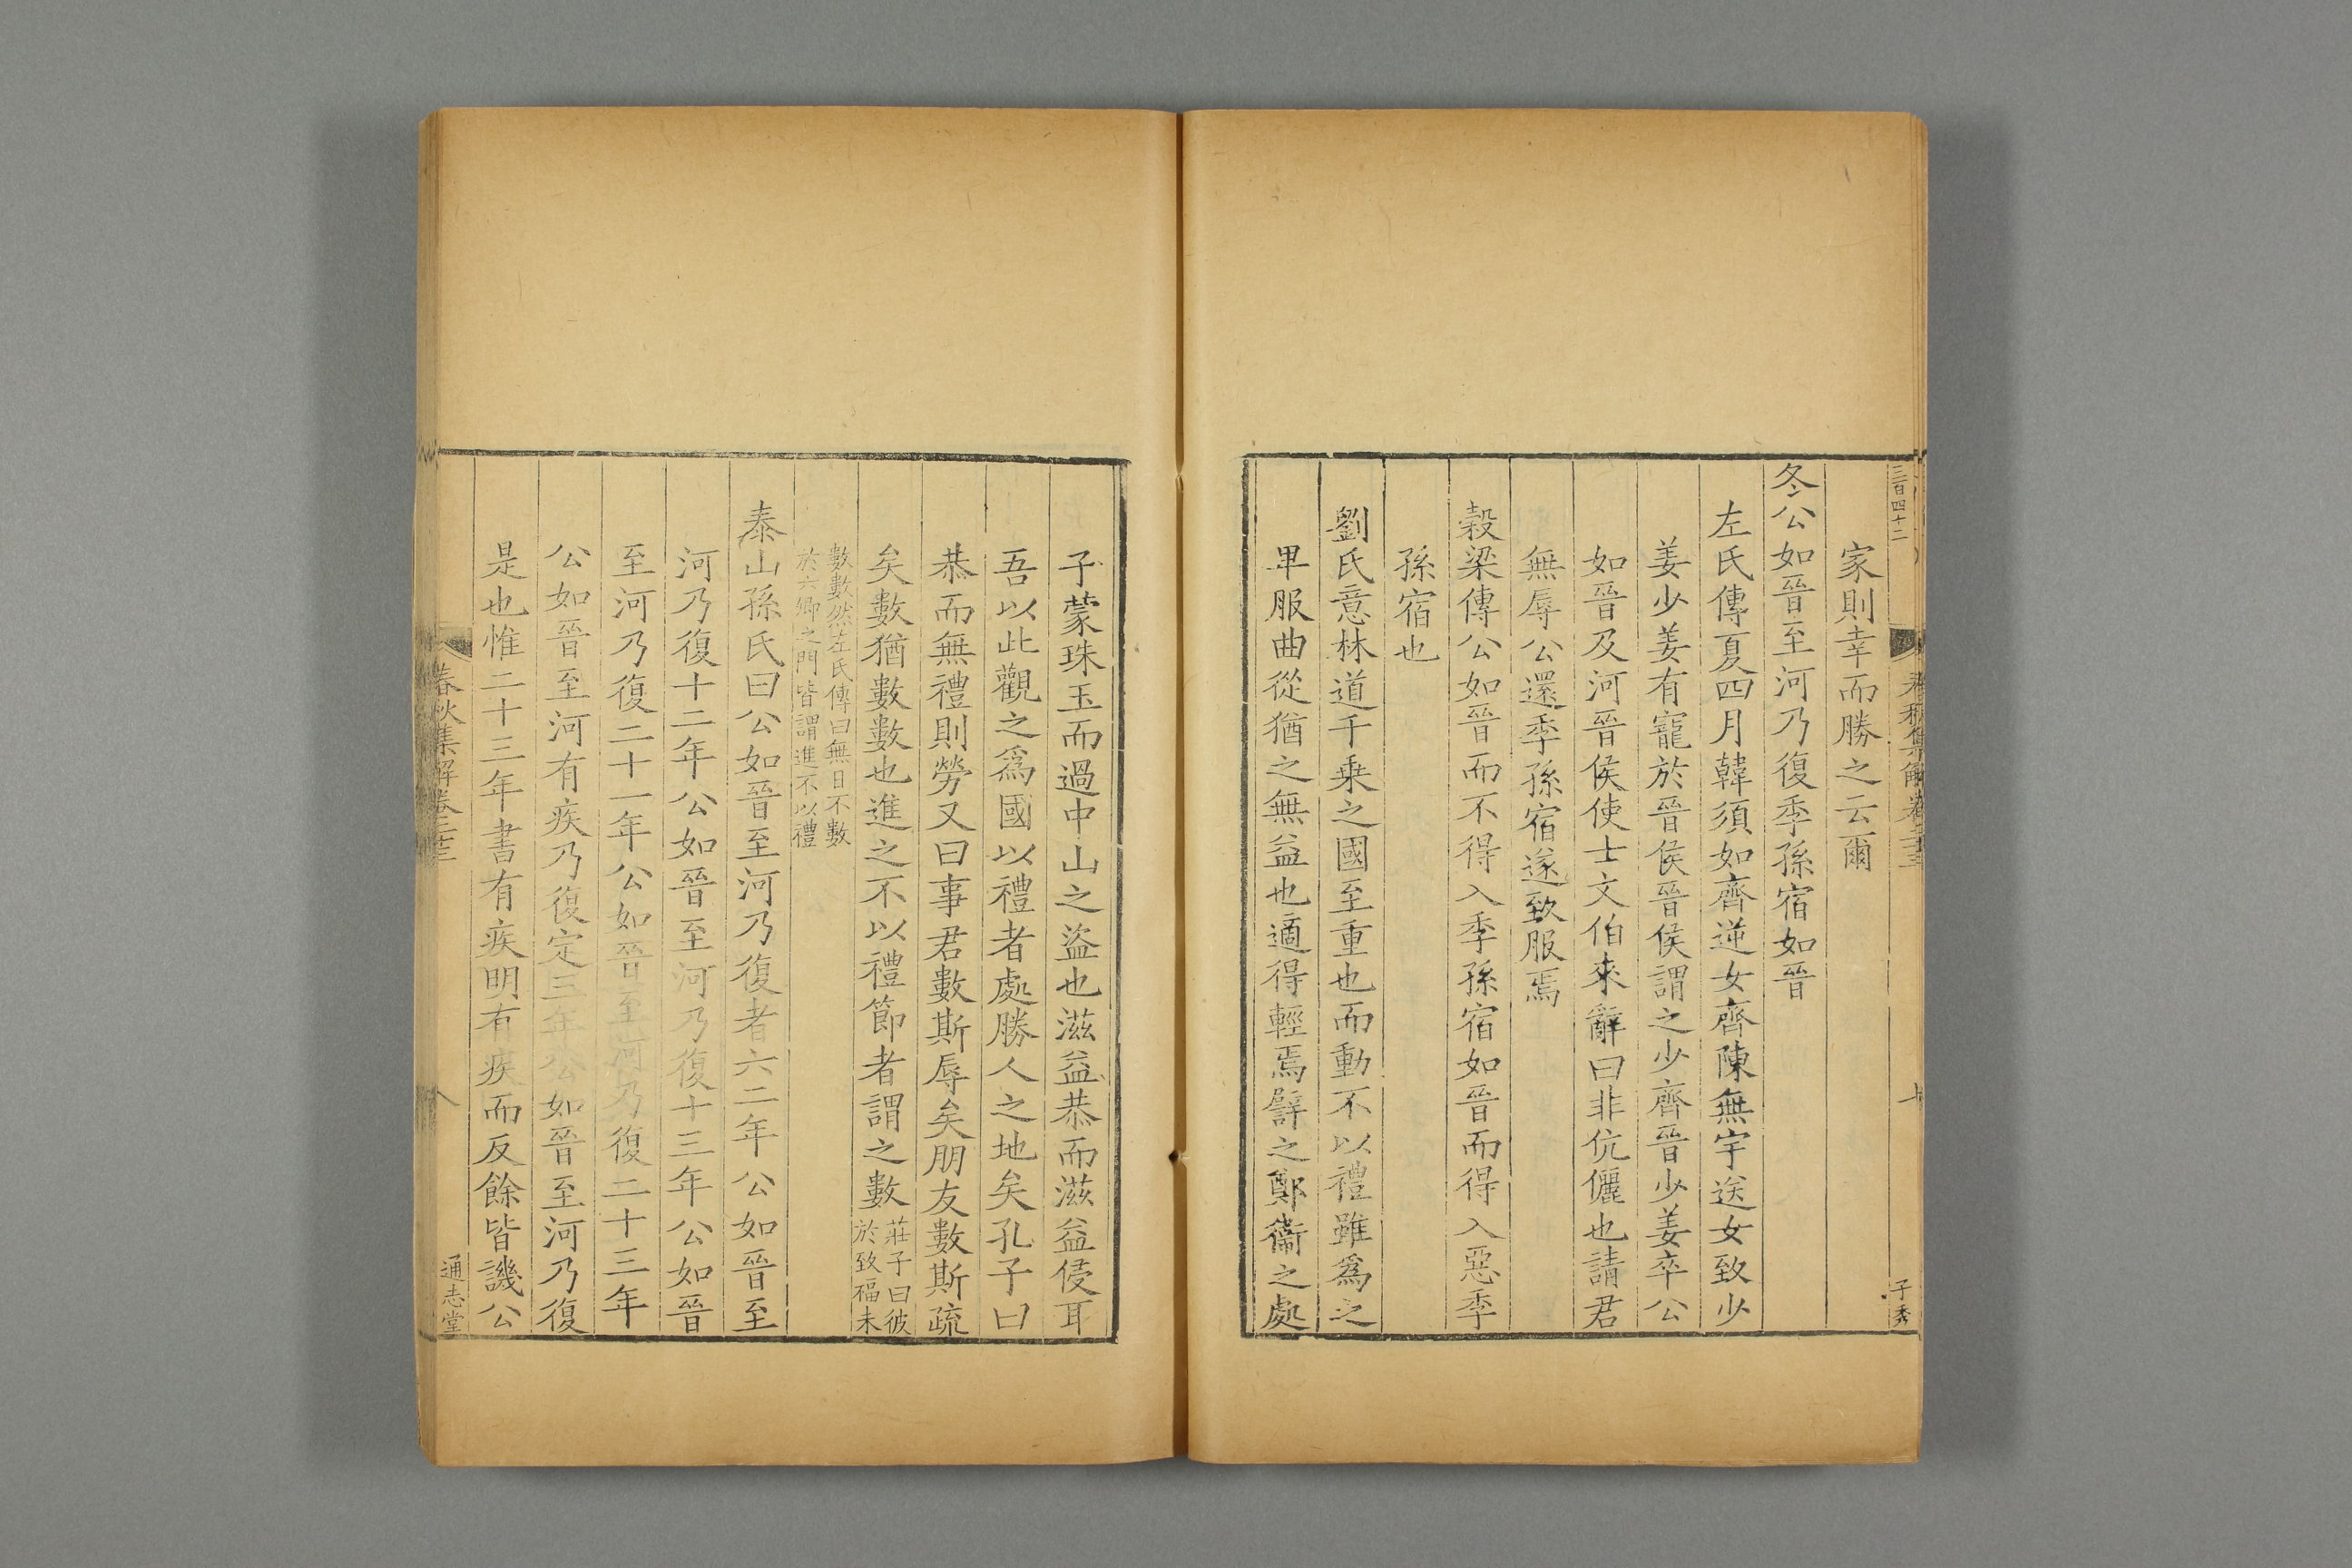 三百四十二
家則幸而勝之云爾
冬公如晉至河乃復季孫宿如晉
左氏傳夏四月韓須如齊逆女齊陳無宇送女致少
姜少姜有寵於晉侯晉侯謂之少齊晉少姜卒公
如晉及河晉侯使士文伯來辭曰非伉儷也請君
無辱公還季孫宿遂致服焉
穀梁傳公如晉而不得入季孫宿如晉而得入惡季
孫宿也
劉氏意林道千乗之國至重也而動不以禮雖爲之
卑服曲從猶之無益也適得輕焉譬之鄭衞之處
子蒙珠玉而過中山之盜也滋益恭而滋益侵耳
吾以此觀之爲國以禮者處勝人之地矣孔子曰
恭而無禮則勞又曰事君數斯辱矣朋友數斯疏
矣數猶數數也進之不以禮節者謂之數
莊子曰彼
於致福未
數數然左氏傳曰無日不數
於六卿之門皆謂進不以禮
泰山孫氏曰公如晉至河乃復者六二年公如晉至
河乃復十二年公如晉至河乃復十三年公如晉
至河乃復二十一年公如晉至河乃復二十三年
公如晉至河有疾乃復定三年公如晉至河乃復
是也惟二十三年書有疾明有疾而反餘皆譏公
春秋集解卷二十三
通志堂